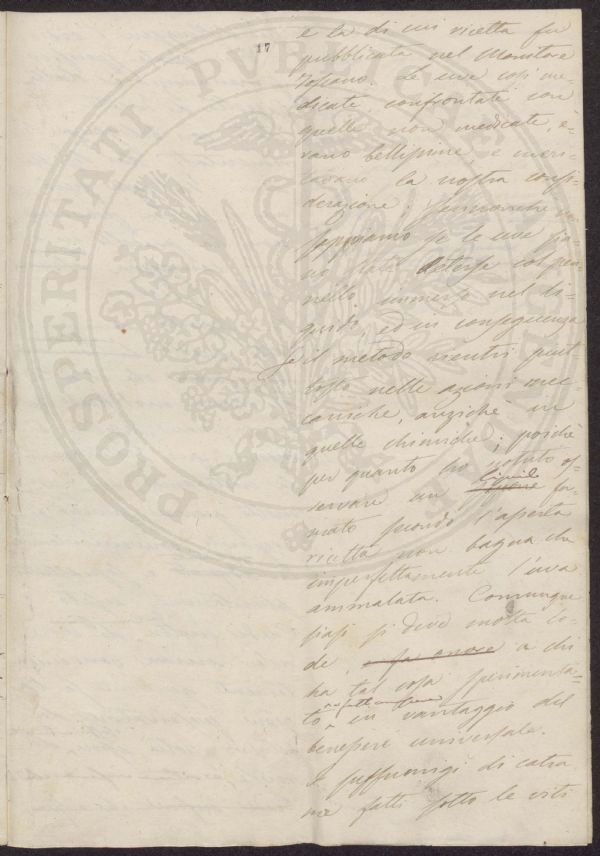 17
e la di cui ricetta fu
pubblicata nel Monitore
Toscano. Le uve così me-
dicate, confrontate con
quelle non medicate, e-
rano bellissime, e meri-
tavano la nostra consi-
derazione; sennonchè non
sappiamo se le uve sia-
no state deterse col pen-
nello immerso nel li-
quido, ed in conseguenza
se il metodo rientri piut-
tosto nelle azioni mec-
caniche, anzichè in
quelle chimiche; poichè
per quanto ho potuto os-
servare un simile for-
mato secondo l'aperta
ricetta non bagna che
imperfettamente l'uva
ammalata. Comunque
siasi si deve molta lo-
de a chi
ha tal cosa sperimenta-
to in vantaggio del
benessere universale.
I suffumigi di catra
me fatti sotto le viti
PROSPERITATI PVBLICAE